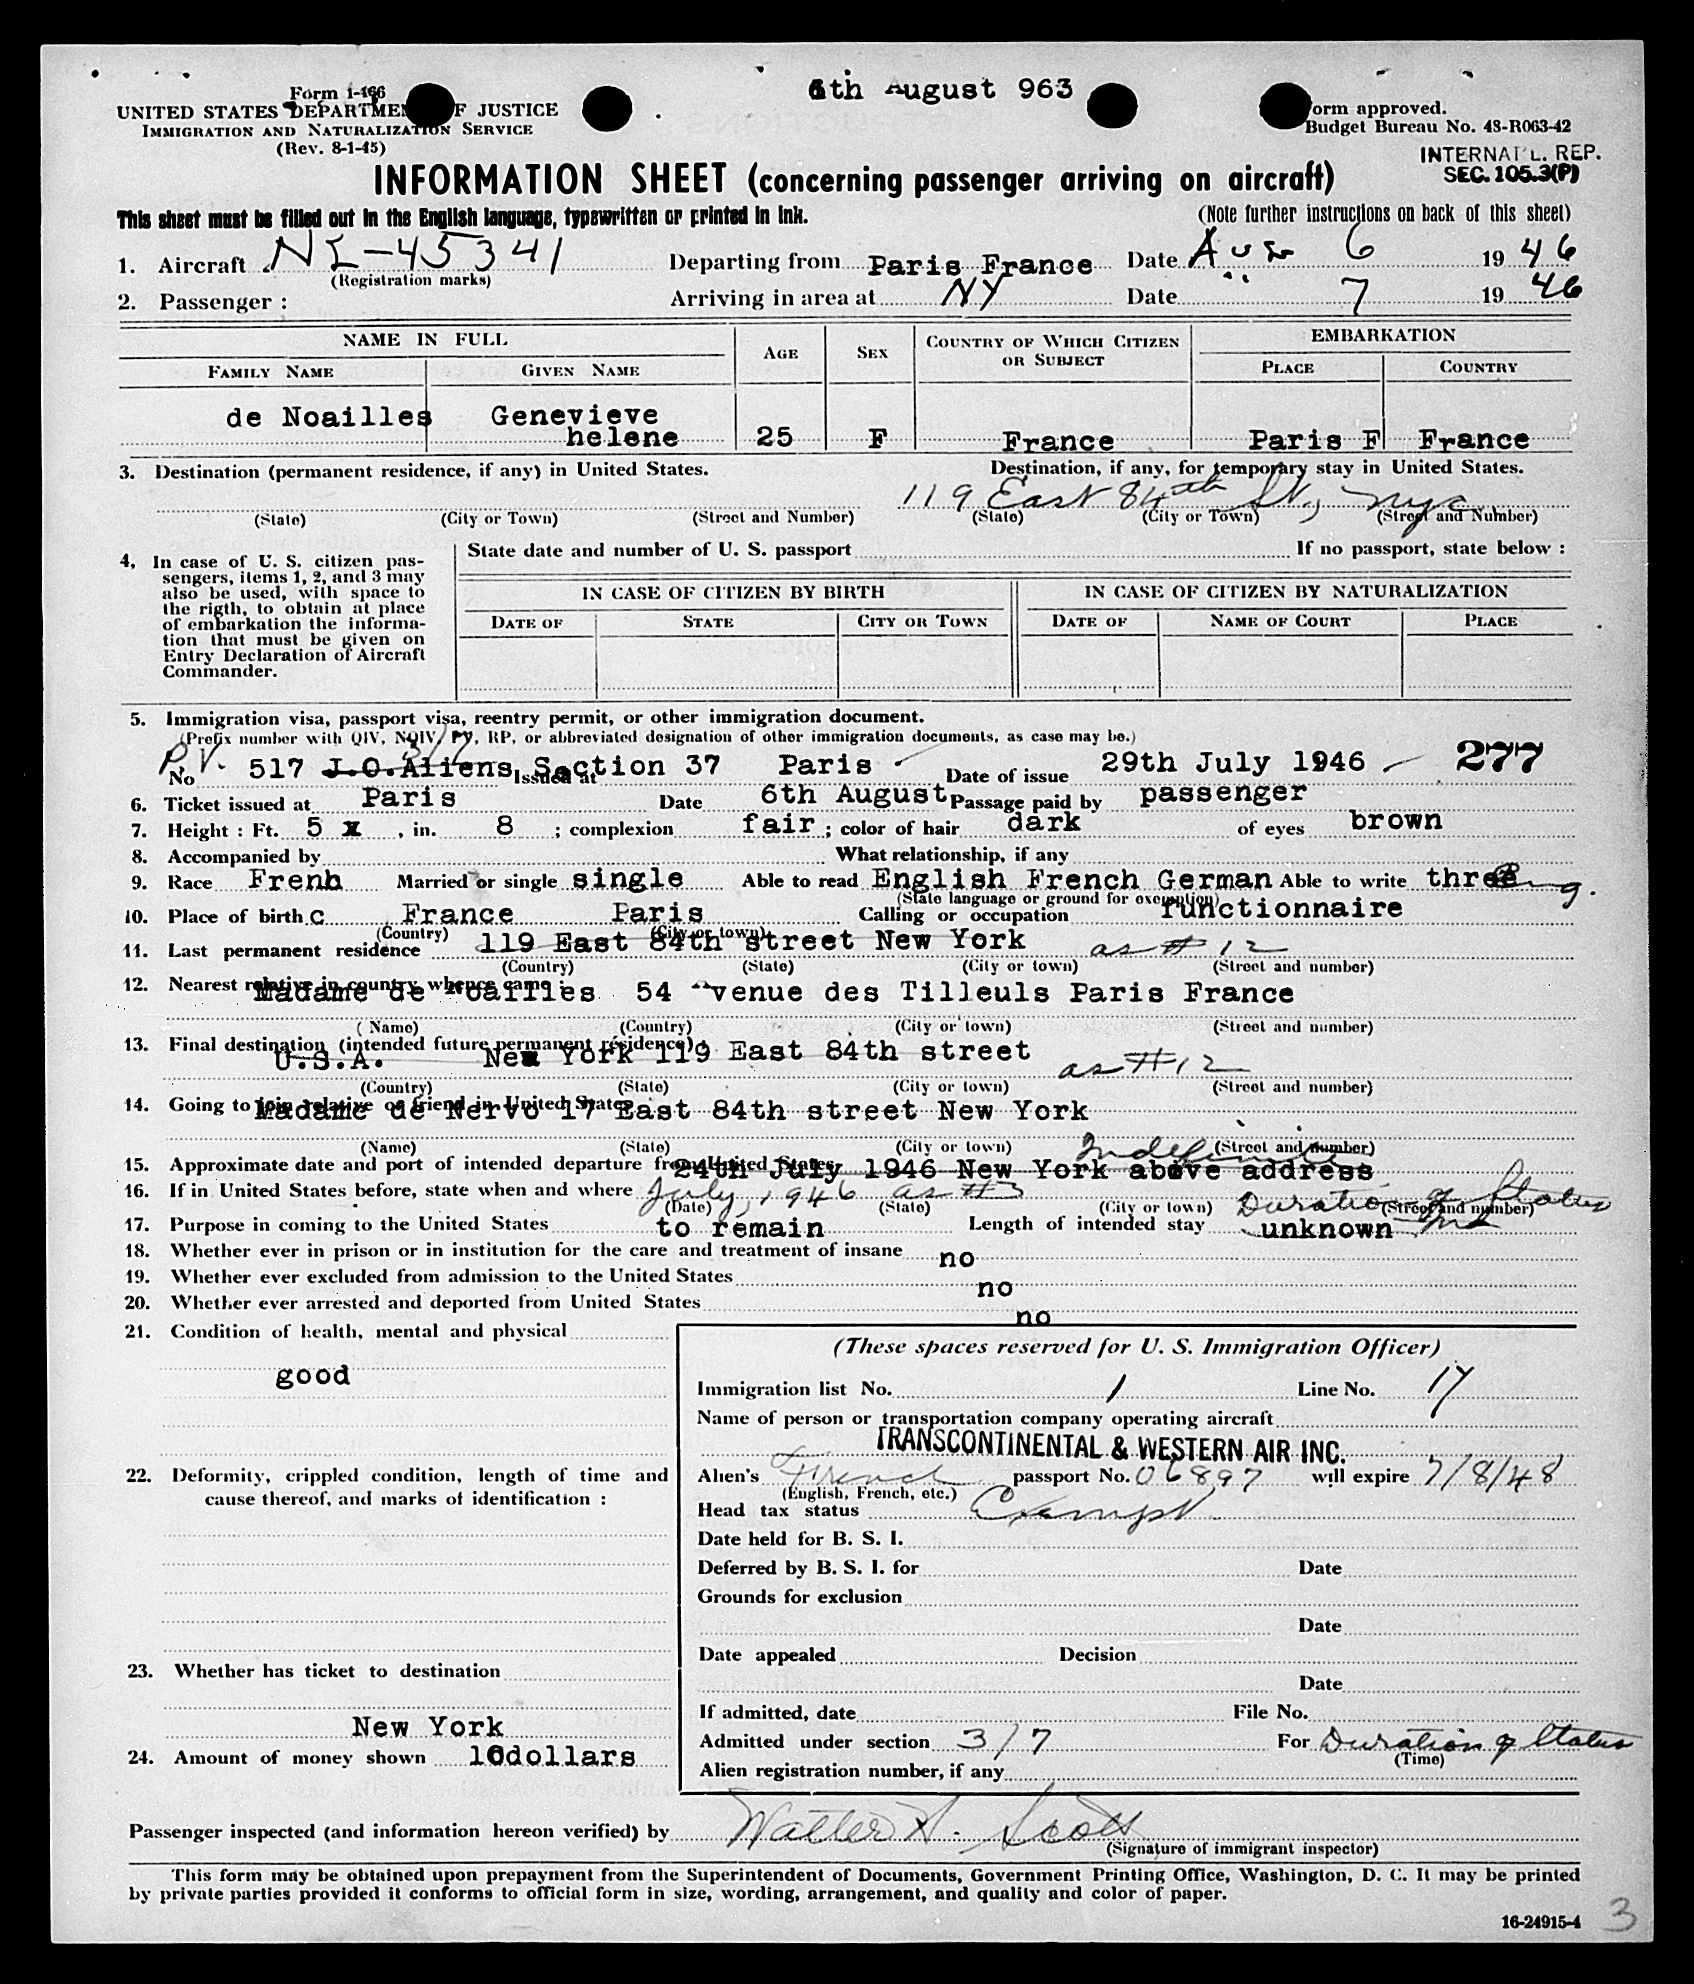 6th August 963
Form I-466
UNITED STATES DEPARTMENT OF JUSTICE
IMMIGRATION AND NATURALIZATION SERVICE
(Rev. 8-1-45)
Form approved.
Budget Bureau No. 43-R063-42
INTERNAT'L. REP.
SEC. 105.3(P)
INFORMATION SHEET (concerning passenger arriving on aircraft)
This sheet must be filled out in the English language, typewritten or printed in ink.
(Note further instructions on back of this sheet)
1. Aircraft NL-45341 Departing from Paris France Date Aug 6 1946
(Registration marks)
2. Passenger : Arriving in area at NY Date " 7 1946
NAME IN FULL AGE SEX COUNTRY OF WHICH CITIZEN OR SUBJECT EMBARKATION
FAMILY NAME GIVEN NAME PLACE COUNTRY
de Noailles Genevieve
helene 25 F France Paris F France
3. Destination (permanent residence, if any) in United States. Destination, if any, for temporary stay in United States.
119 East 84th St., NYC
(State) (City or Town) (Street and Number) (State) (City or Town) (Street and Number)
4, In case of U. S. citizen pas-
sengers, items 1, 2, and 3 may
also be used, with space to
the rigth, to obtain at place
of embarkation the informa-
tion that must be given on
Entry Declaration of Aircraft
Commander.
State date and number of U. S. passport If no passport, state below :
IN CASE OF CITIZEN BY BIRTH IN CASE OF CITIZEN BY NATURALIZATION
DATE OF STATE CITY OR TOWN DATE OF NAME OF COURT PLACE
5. Immigration visa, passport visa, reentry permit, or other immigration document.
(Prefix number with QIV, NQIV, PV, RP, or abbreviated designation of other immigration documents, as case may be.)
P.V. 3/7
No 517 I.O.Aliens Section 37 Issued at Paris Date of issue 29th July 1946 277
6. Ticket issued at Paris Date 6th August Passage paid by passenger
7. Height : Ft. 5 x , in. 8 ; complexion fair ; color of hair dark of eyes brown
8. Accompanied by What relationship, if any
9. Race Frenh Married or single single Able to read English French German Able to write three Eng.
(State language or ground for exemption)
10. Place of birth c France Paris Calling or occupation functionnaire
(Country) (City or town)
11. Last permanent residence 119 East 84th street New York as # 12
(Country) (State) (City or town) (Street and number)
12. Nearest relative in country whence came :
Madame de Noailles 54 Avenue des Tilleuls Paris France
(Name) (Country) (City or town) (Street and number)
13. Final destination (intended future permanent residence) :
U.S.A. New York 119 East 84th street as # 12
(Country) (State) (City or town) (Street and number)
14. Going to join relative or friend in United States
Madame de Nervo 17 East 84th street New York
(Name) (State) (City or town) (Street and number)
Indefinite
15. Approximate date and port of intended departure from United States
24th July 1946 New York above address
16. If in United States before, state when and where July, 1946 as # 3
(Date) (State) (City or town) (Street and number)
Duration of Status
17. Purpose in coming to the United States to remain Length of intended stay unknown
18. Whether ever in prison or in institution for the care and treatment of insane no
19. Whether ever excluded from admission to the United States no
20. Whether ever arrested and deported from United States no
21. Condition of health, mental and physical
good
22. Deformity, crippled condition, length of time and
cause thereof, and marks of identification :
23. Whether has ticket to destination
New York
24. Amount of money shown 10dollars
(These spaces reserved for U. S. Immigration Officer)
Immigration list No. 1 Line No. 17
Name of person or transportation company operating aircraft
TRANSCONTINENTAL & WESTERN AIR INC.
Alien's French passport No. 06897 will expire 7/8/48
(English, French, etc.)
Head tax status Exempt
Date held for B. S. I.
Deferred by B. S. I. for Date
Grounds for exclusion
Date
Date appealed Decision
Date
If admitted, date File No.
Admitted under section 3/7 For Duration of Status
(Time)
Alien registration number, if any
Passenger inspected (and information hereon verified) by Walter H. Scott
(Signature of immigrant inspector)
This form may be obtained upon prepayment from the Superintendent of Documents, Government Printing Office, Washington, D. C. It may be printed
by private parties provided it conforms to official form in size, wording, arrangement, and quality and color of paper.
16-24915-4 3